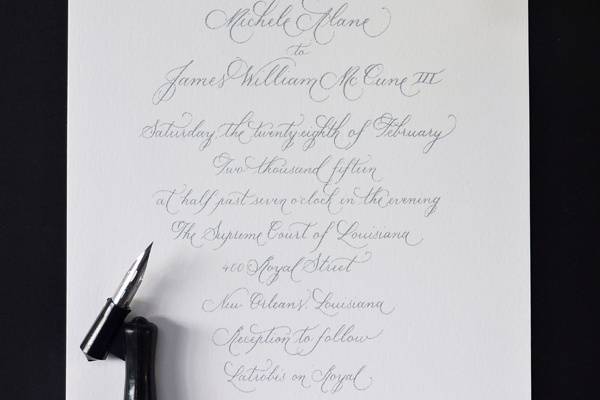 Michele Alane
to
James William McCune III
Saturday, the twenty eighth of February
Two thousand fifteen
at half past seven o'clock in the evening
The Supreme Court of Louisiana
400 Royal Street
New Orleans, Louisiana
Reception to follow
Latrobe's on Royal